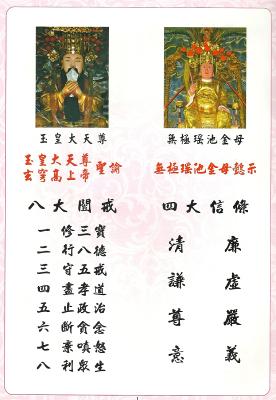 玉皇大天尊
玉皇大天尊
玄穹高上帝 聖諭
八大戒
一 修三寶
二 行八德
三 守五戒
四 盡孝道
五 止政治
六 斷貪念
七 棄嗔怒
八 利眾生
無極瑤池金母
無極瑤池金母懿示
四大信條
清廉
謙虛
尊嚴
意義